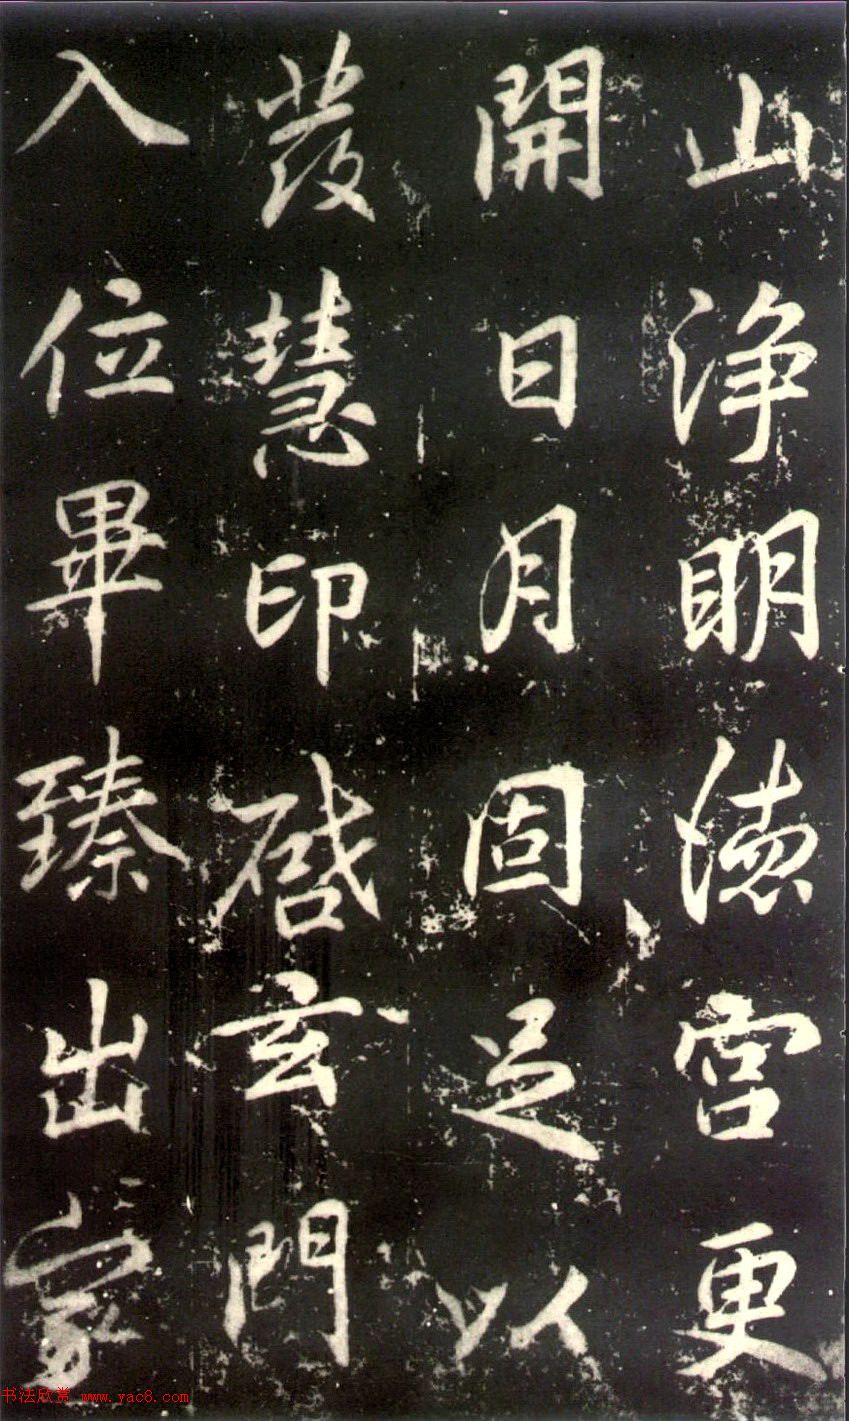 山浄明德宫更
開日月固足以
發慧印啓玄門
入位畢臻出家
书法欣赏 www.yac8.com